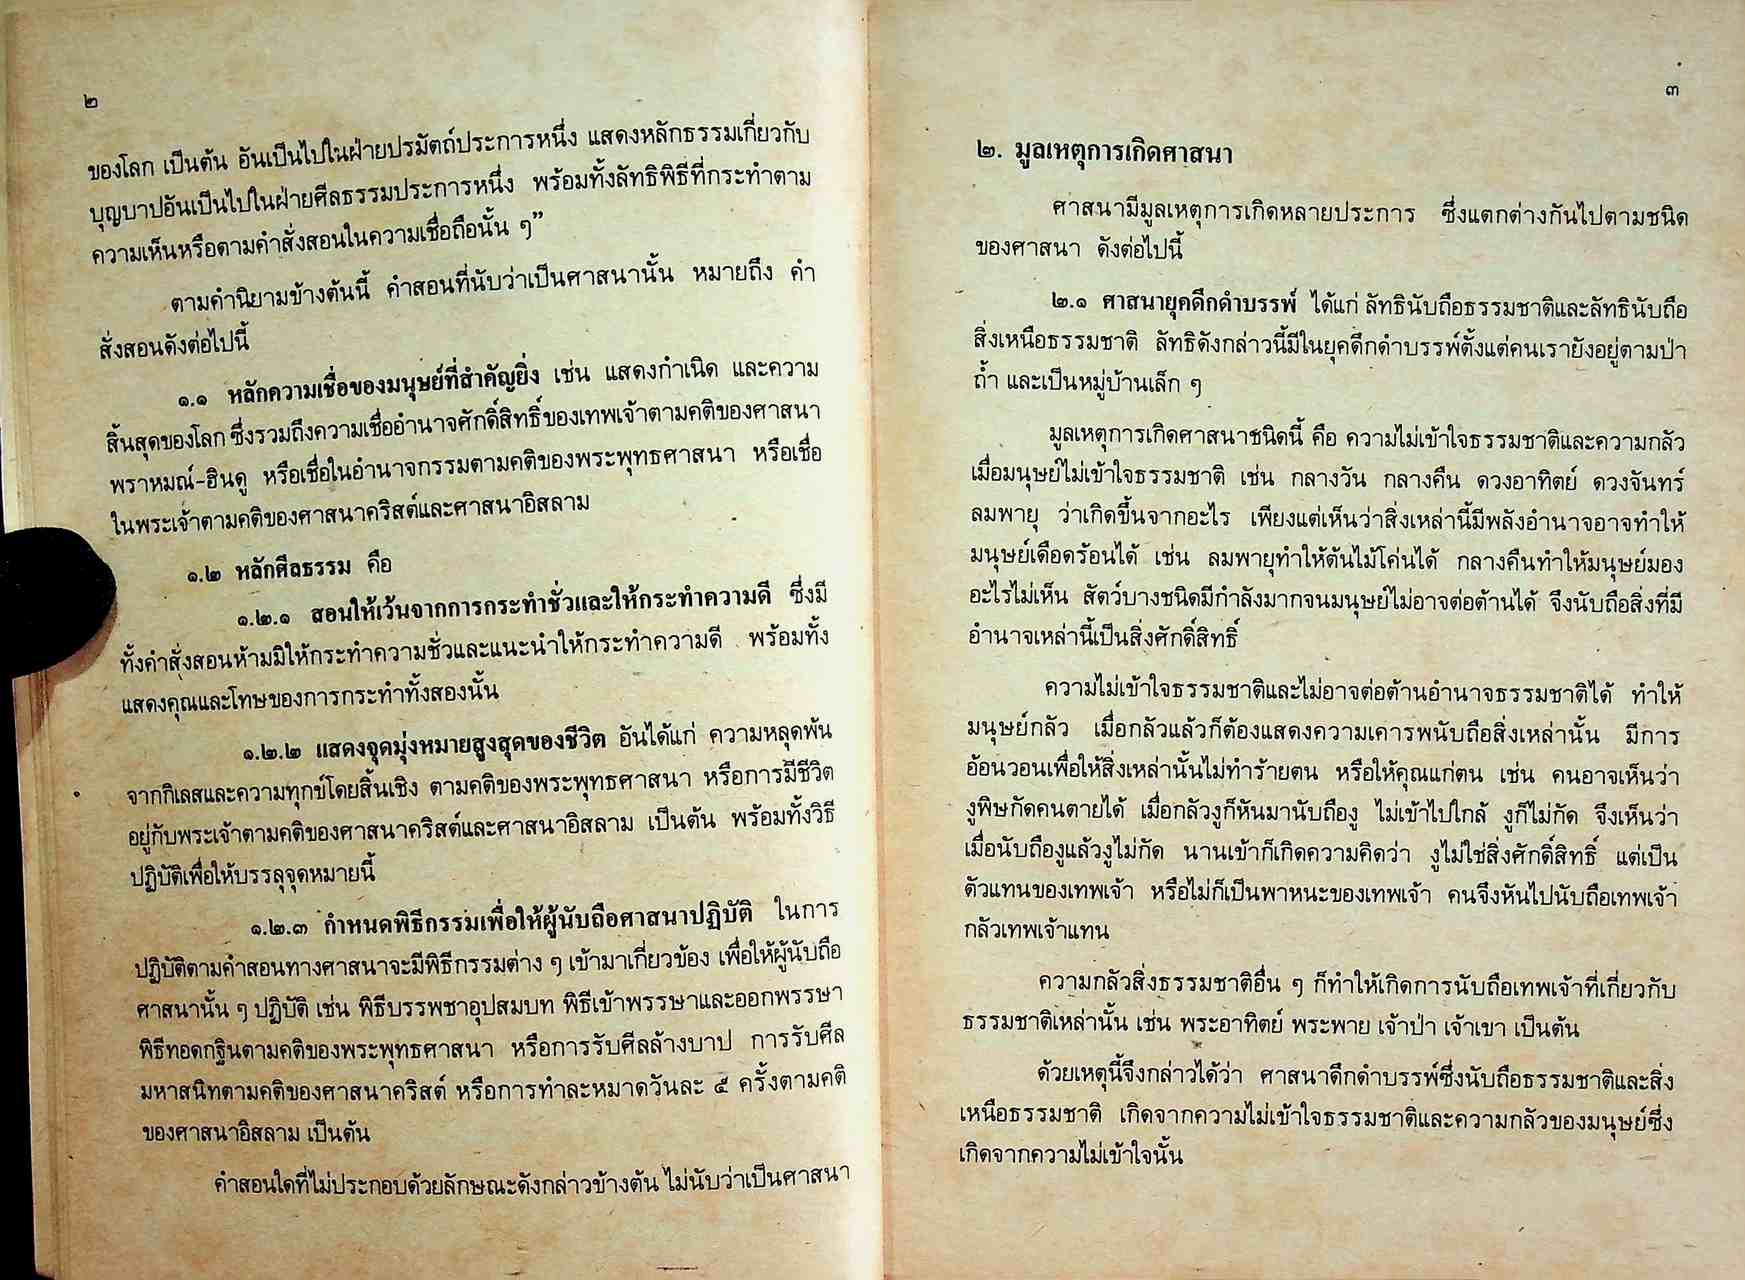 ๒
ของโลก เป็นต้น อันเป็นไปในฝ่ายปรมัตถ์ประการหนึ่ง แสดงหลักธรรมเกี่ยวกับ
บุญบาปอันเป็นไปในฝ่ายศีลธรรมประการหนึ่ง พร้อมทั้งลัทธิพิธีที่กระทำตาม
ความเห็นหรือตามคำสั่งสอนในความเชื่อถือนั้น ๆ”
ตามคำนิยามข้างต้นนี้ คำสอนที่นับว่าเป็นศาสนานั้น หมายถึง คำ
สั่งสอนดังต่อไปนี้
๑.๑ หลักความเชื่อของมนุษย์ที่สำคัญยิ่ง เช่น แสดงกำเนิด และความ
สิ้นสุดของโลก ซึ่งรวมถึงความเชื่ออำนาจศักดิ์สิทธิ์ของเทพเจ้าตามคติของศาสนา
พราหมณ์-ฮินดู หรือเชื่อในอำนาจกรรมตามคติของพระพุทธศาสนา หรือเชื่อ
ในพระเจ้าตามคติของศาสนาคริสต์และศาสนาอิสลาม
๑.๒ หลักศีลธรรม คือ
๑.๒.๑ สอนให้เว้นจากการกระทำชั่วและให้กระทำความดี ซึ่งมี
ทั้งคำสั่งสอนห้ามมิให้กระทำความชั่วและแนะนำให้กระทำความดี พร้อมทั้ง
แสดงคุณและโทษของการกระทำทั้งสองนั้น
๑.๒.๒ แสดงจุดมุ่งหมายสูงสุดของชีวิต อันได้แก่ ความหลุดพ้น
จากกิเลสและความทุกข์โดยสิ้นเชิง ตามคติของพระพุทธศาสนา หรือการมีชีวิต
อยู่กับพระเจ้าตามคติของศาสนาคริสต์และศาสนาอิสลาม เป็นต้น พร้อมทั้งวิธี
ปฏิบัติเพื่อให้บรรลุจุดหมายนี้
๑.๒.๓ กำหนดพิธีกรรมเพื่อให้ผู้นับถือศาสนาปฏิบัติ ในการ
ปฏิบัติตามคำสอนทางศาสนาจะมีพิธีกรรมต่าง ๆ เข้ามาเกี่ยวข้อง เพื่อให้ผู้นับถือ
ศาสนานั้น ๆ ปฏิบัติ เช่น พิธีบรรพชาอุปสมบท พิธีเข้าพรรษาและออกพรรษา
พิธีทอดกฐินตามคติของพระพุทธศาสนา หรือการรับศีลล้างบาป การรับศีล
มหาสนิทตามคติของศาสนาคริสต์ หรือการทำละหมาดวันละ ๕ ครั้งตามคติ
ของศาสนาอิสลาม เป็นต้น
คำสอนใดที่ไม่ประกอบด้วยลักษณะดังกล่าวข้างต้น ไม่นับว่าเป็นศาสนา
๓
๒. มูลเหตุการเกิดศาสนา
ศาสนามีมูลเหตุการเกิดหลายประการ ซึ่งแตกต่างกันไปตามชนิด
ของศาสนา ดังต่อไปนี้
๒.๑ ศาสนายุคดึกดำบรรพ์ ได้แก่ ลัทธินับถือธรรมชาติและลัทธินับถือ
สิ่งเหนือธรรมชาติ ลัทธิดังกล่าวนี้มีในยุคดึกดำบรรพ์ตั้งแต่คนเรายังอยู่ตามป่า
ถ้ำ และเป็นหมู่บ้านเล็ก ๆ
มูลเหตุการเกิดศาสนาชนิดนี้ คือ ความไม่เข้าใจธรรมชาติและความกลัว
เมื่อมนุษย์ไม่เข้าใจธรรมชาติ เช่น กลางวัน กลางคืน ดวงอาทิตย์ ดวงจันทร์
ลมพายุ ว่าเกิดขึ้นจากอะไร เพียงแต่เห็นว่าสิ่งเหล่านี้มีพลังอำนาจอาจทำให้
มนุษย์เดือดร้อนได้ เช่น ลมพายุทำให้ต้นไม้โค่นได้ กลางคืนทำให้มนุษย์มอง
อะไรไม่เห็น สัตว์บางชนิดมีกำลังมากจนมนุษย์ไม่อาจต่อต้านได้ จึงนับถือสิ่งที่มี
อำนาจเหล่านี้เป็นสิ่งศักดิ์สิทธิ์
ความไม่เข้าใจธรรมชาติและไม่อาจต่อต้านอำนาจธรรมชาติได้ ทำให้
มนุษย์กลัว เมื่อกลัวแล้วก็ต้องแสดงความเคารพนับถือสิ่งเหล่านั้น มีการ
อ้อนวอนเพื่อให้สิ่งเหล่านั้นไม่ทำร้ายตน หรือให้คุณแก่ตน เช่น คนอาจเห็นว่า
งูพิษกัดคนตายได้ เมื่อกลัวงูก็หันมานับถืองู ไม่เข้าไปใกล้ งูก็ไม่กัด จึงเห็นว่า
เมื่อนับถืองูแล้วงูไม่กัด นานเข้าก็เกิดความคิดว่า งูไม่ใช่สิ่งศักดิ์สิทธิ์ แต่เป็น
ตัวแทนของเทพเจ้า หรือไม่ก็เป็นพาหนะของเทพเจ้า คนจึงหันไปนับถือเทพเจ้า
กลัวเทพเจ้าแทน
ความกลัวสิ่งธรรมชาติอื่น ๆ ก็ทำให้เกิดการนับถือเทพเจ้าที่เกี่ยวกับ
ธรรมชาติเหล่านั้น เช่น พระอาทิตย์ พระพาย เจ้าป่า เจ้าเขา เป็นต้น
ด้วยเหตุนี้จึงกล่าวได้ว่า ศาสนาดึกดำบรรพ์ซึ่งนับถือธรรมชาติและสิ่ง
เหนือธรรมชาติ เกิดจากความไม่เข้าใจธรรมชาติและความกลัวของมนุษย์ซึ่ง
เกิดจากความไม่เข้าใจนั้น